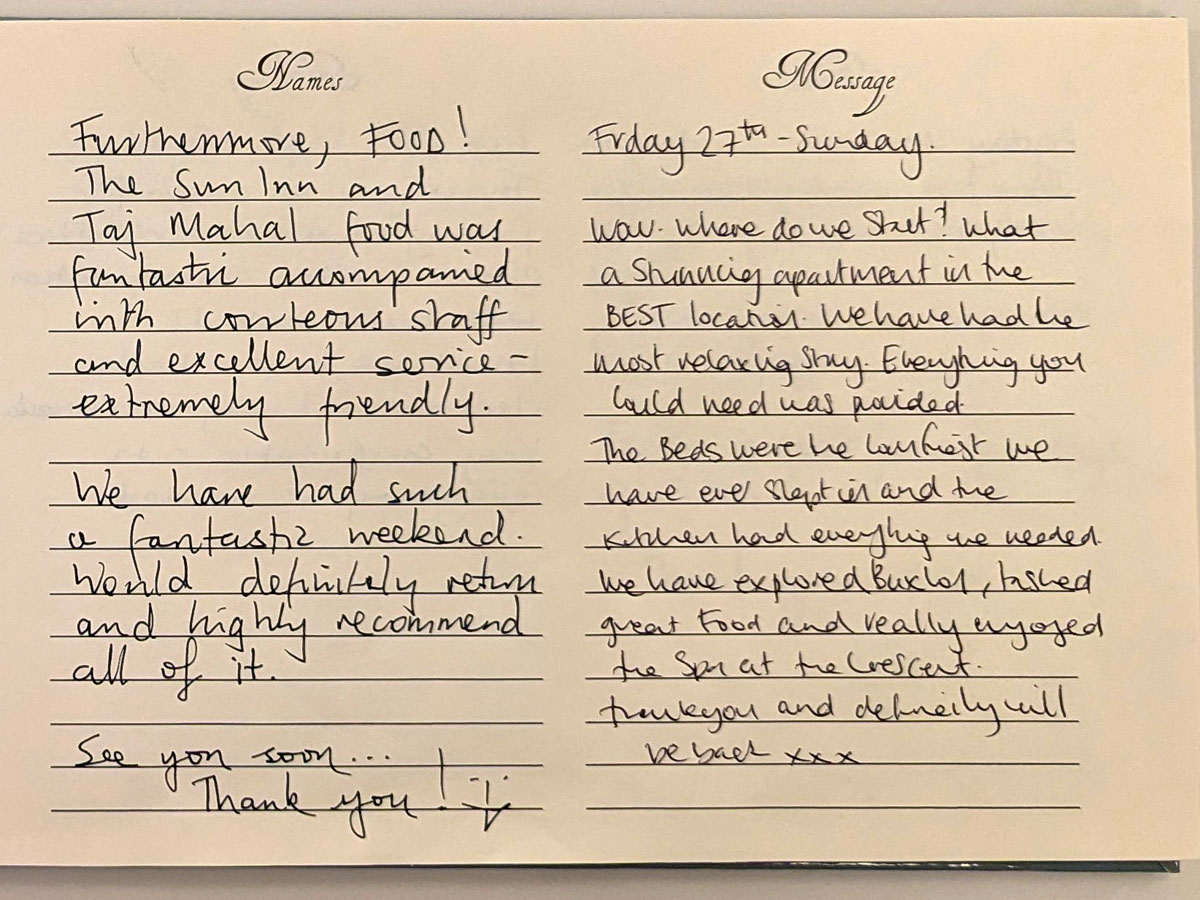 Names
Furthermore, FOOD!
The Sun Inn and
Taj Mahal food was
fantastic accompanied
with courteous staff
and excellent service -
extremely friendly.
We have had such
a fantastic weekend.
Would definitely return
and highly recommend
all of it.
See you soon...
Thank you!
Message
Frday 27th - Sunday.
Wow. Where do we Start? What
a Stunning apartment in the
BEST location. We have had the
most relaxing Stay. Everything you
Could need was provided.
The Beds were the comfiest we
have ever Slept in and the
Kitchen had everything we needed.
We have explored Buxton, tasted
great Food and really enjoyed
the Spa at the Crescent.
thankyou and definitely will
be back xxx